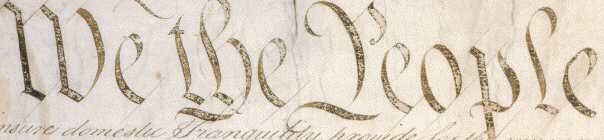 We the People
insure domestic Tranquility, provide for